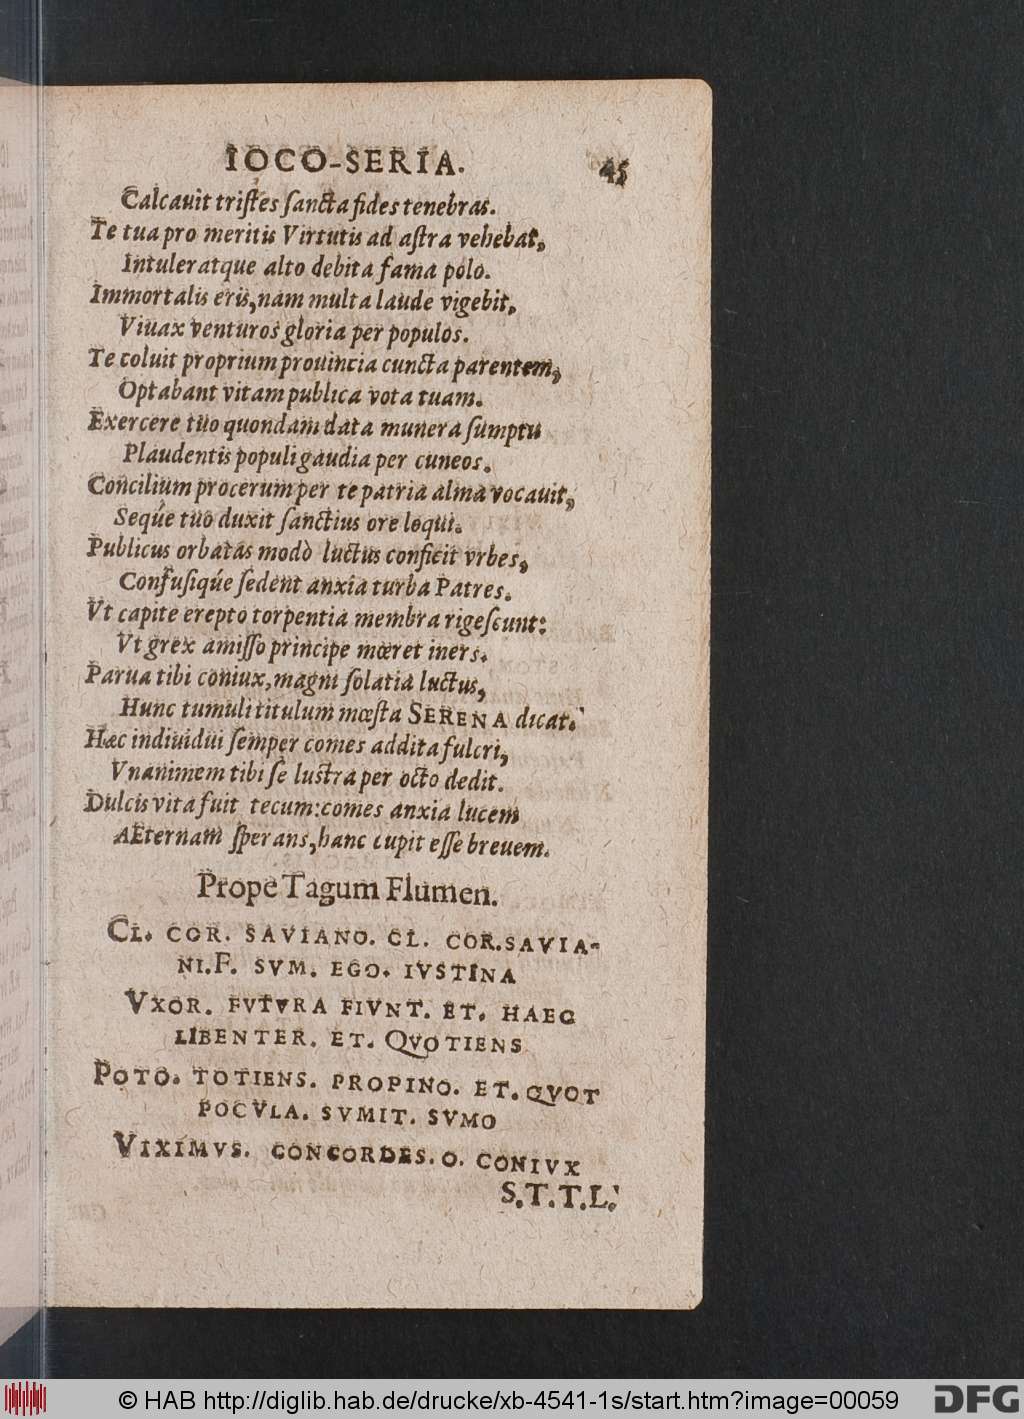 IOCO-SERIA. 45
Calcauit tristes ſancta fides tenebras.
Te tua pro meritis Virtutis ad aſtra vehebat,
Intuleratque alto debita fama polo.
Immortalis eris, nam multa laude vigebit,
Viuax venturos gloria per populos.
Te coluit proprium prouincia cuncta parentem,
Optabant vitam publica vota tuam.
Exercere tuo quondam data munera ſumptu
Plaudentis populi gaudia per cuneos.
Concilium procerum per te patria alma vocauit,
Seqúe tuo duxit ſanctius ore loqui.
Publicus orbatas modò luctus conficit vrbes,
Confuſiqúe ſedent anxia turba Patres.
Vt capite erepto torpentia membra rigeſcunt:
Vt grex amiſſo principe mœret iners.
Parua tibi coniux, magni ſolatia luctus,
Hunc tumuli titulum mœſta SERENA dicat.
Hæc indiuidui ſemper comes addita fulcri,
Vnanimem tibi ſe luſtra per octo dedit.
Dulcis vita fuit tecum: comes anxia lucem
AEternam ſperans, hanc cupit eſſe breuem.
Prope Tagum Flumen.
CL. COR. SAVIANO. CL. COR. SAVIA-
NI. F. SVM. EGO. IVSTINA
VXOR. FVTVRA FIVNT. ET. HAEC
LIBENTER. ET. QVOTIENS
POTO. TOTIENS. PROPINO. ET. QVOT
POCVLA. SVMIT. SVMO
VIXIMVS. CONCORDES. O. CONIVX
S.T.T.L.
© HAB http://diglib.hab.de/drucke/xb-4541-1s/start.htm?image=00059
DFG